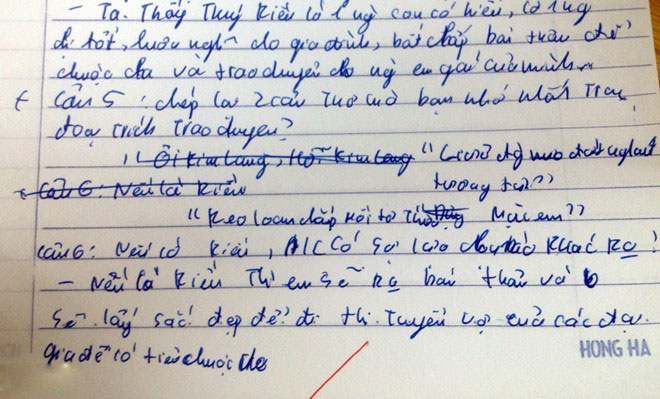 - Ta. Thấy Thuý Kiều là 1 ng con có hiếu, có lòng
tốt, luôn nghĩ cho gia đình, bất chấp bản thân để
chuộc cha và trao duyên cho ng em gái của mình
Câu 5: chép lại 2 câu thơ mà bạn nhớ nhất trong
đoạn trích Trao duyên?
"Ôi Kim lang, Hỡi Kim lang "Giữa đg đứt gánh
Câu 6: Nếu là Kiều tương tư"
"Keo loan chắp mối tơ Thừa Mặc em"
Câu 6: Nếu là Kiều, A/C có sự lựa chọn nào khác ko?
- Nếu là Kiều Thì em sẽ bán thân và
sẽ lấy sắc đẹp để đi thi Tuyển vợ của các đại
gia để có tiền chuộc cha
HONG HA